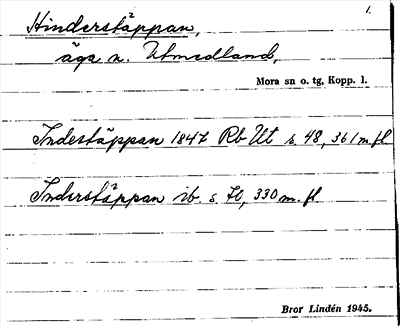 1.
Hinderstäppan,
äga n. Utmedland,
Mora sn o. tg, Kopp. l.
Indestäppan 1847 Rb Ut s. 48, 361 m. fl.
Inderstäppan ib. s. 70, 330 m. fl
Bror Lindén 1945.